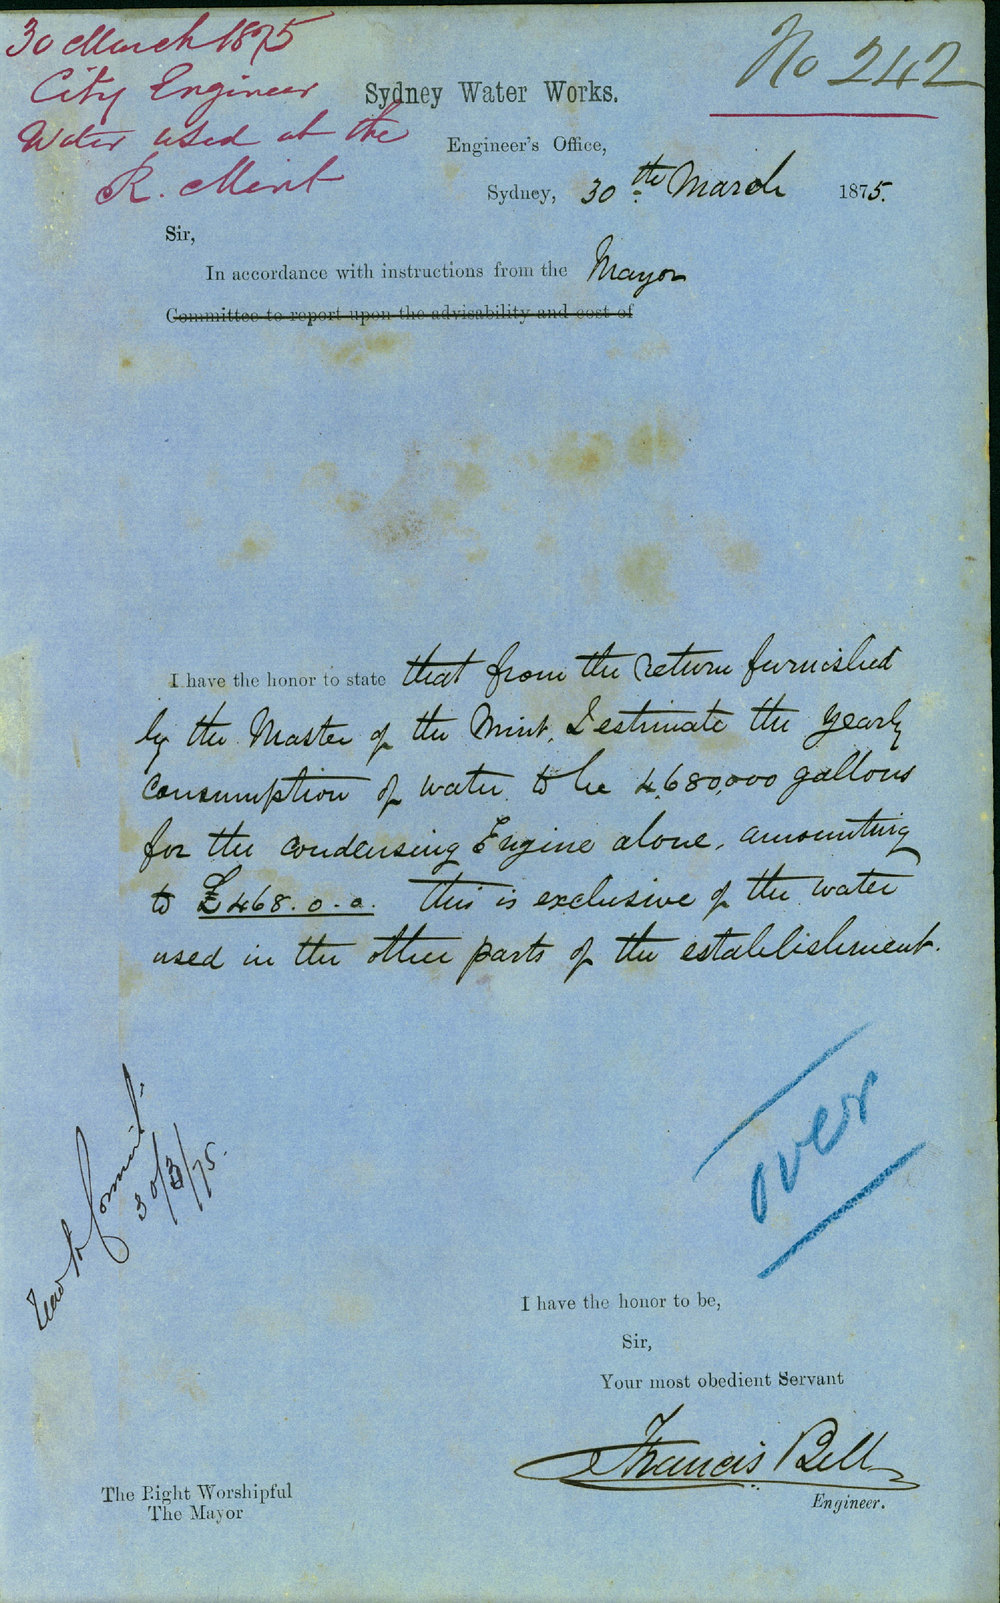 30 March 1875
City Engineer
Water used at the
R. Mint
No 242
Sydney Water Works.
Engineer's Office,
Sydney, 30th March 1875.
Sir,
In accordance with instructions from the Mayor
Committee to report upon the advisability and cost of
I have the honor to state that from the return furnished
by the Master of the Mint, I estimate the yearly
consumption of water to be 4,680,000 gallons
for the condensing Engine alone, amounting
to £468.0.0. this is exclusive of the water
used in the other parts of the establishment.
30/3/75.
over
I have the honor to be,
Sir,
Your most obedient Servant
Francis Bell
Engineer.
The Right Worshipful
The Mayor